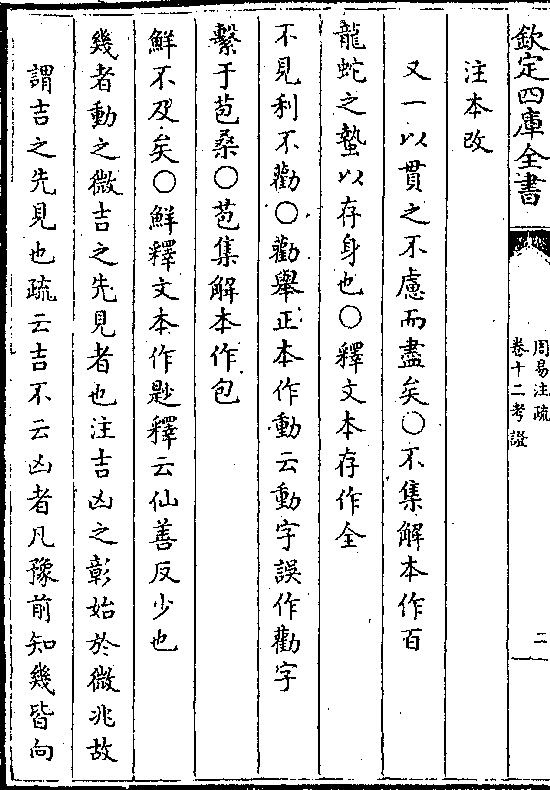 欽定四庫全書
周易注疏
卷十二考證
二
注本改
又一以貫之不慮而盡矣○不集解本作百
龍蛇之蟄以存身也○釋文本存作全
不見利不勸○勸舉正本作動云動字誤作勸字
繫于苞桑○苞集解本作包
鮮不及矣○鮮釋文本作尟釋云仙善反少也
幾者動之微吉之先見者也注吉凶之彰始於微兆故
謂吉之先見也疏云吉不云凶者凡豫前知幾皆向